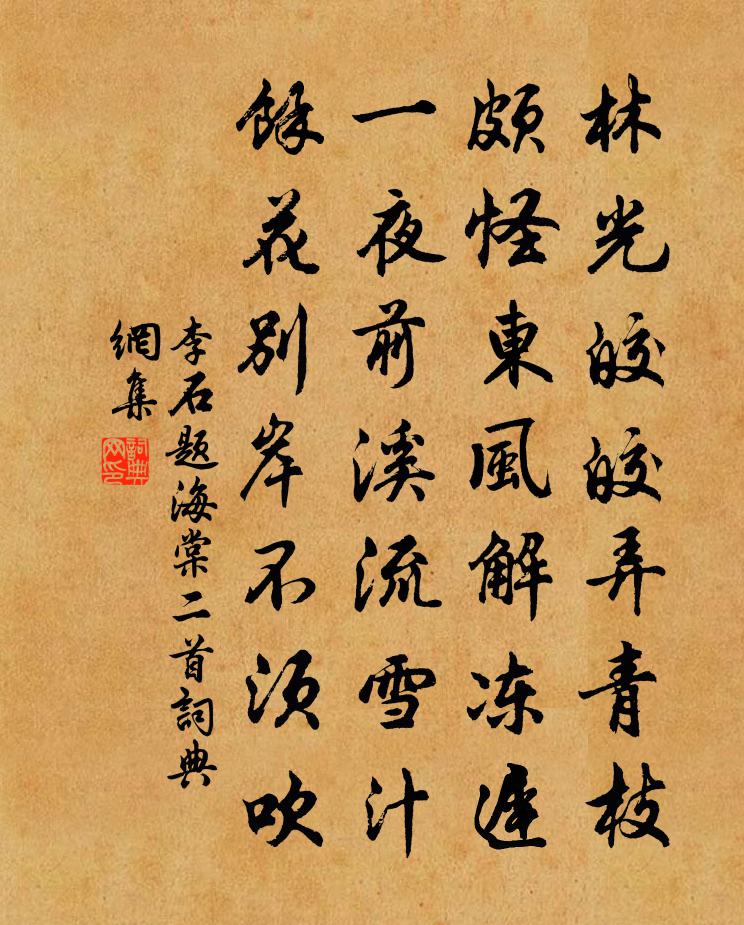 林光皎皎弄青枝
頗怪東風解冻遲
一夜前溪流雪汁
餘花別岸不須吹
李石題海棠二首詞典
網集
詞典
网印